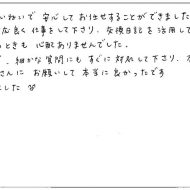 い扱いで 安心してお任せすることができました
応良く仕事をして下さり、交換日記を活用して
ときも 心配ありませんでした。
、細かな質問にもすぐに対処して下さり、
さんに お願いして 本当に良かったです
した